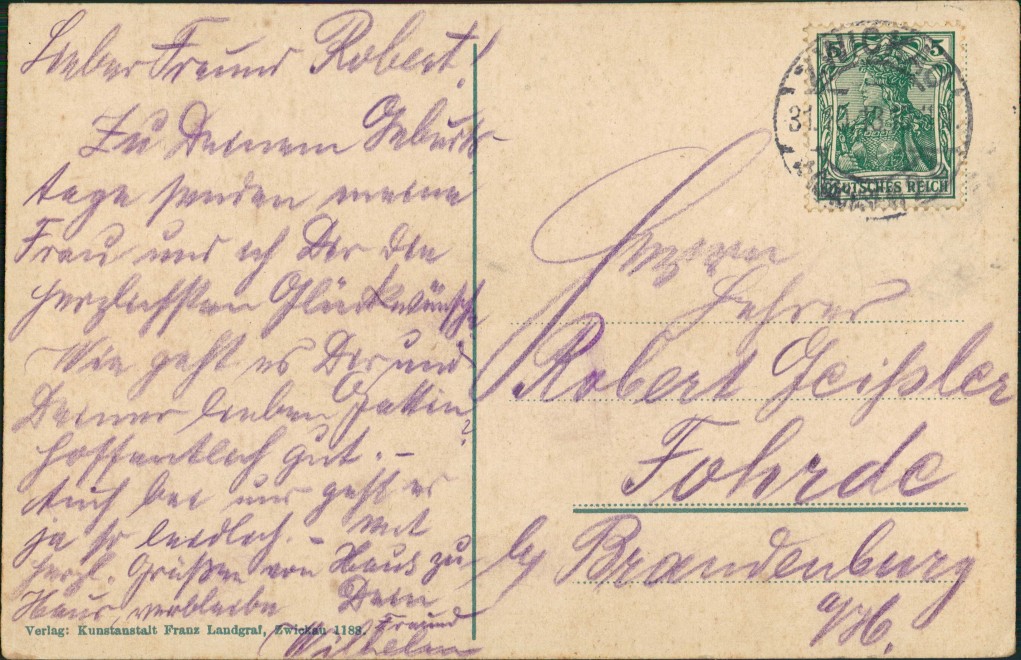 Lieber Freund Robert!
Zu Deinem Geburts-
tage senden meine
Frau und ich Dir die
herzlichsten Glückwünsche
Wie geht es Dir und
Deiner lieben Gattin?
hoffentlich gut. –
Auch bei uns geht es
ja so leidlich. – Mit
herzl. Grüßen von Haus zu
Haus verbleibe Dein
Freund
Wilhelm
Verlag: Kunstanstalt Franz Landgraf, Zwickau 1188.
5 5
DEUTSCHES REICH
31.
Herrn
Lehrer
Robert Geißler
Fohrde
b/ Brandenburg
a/H.